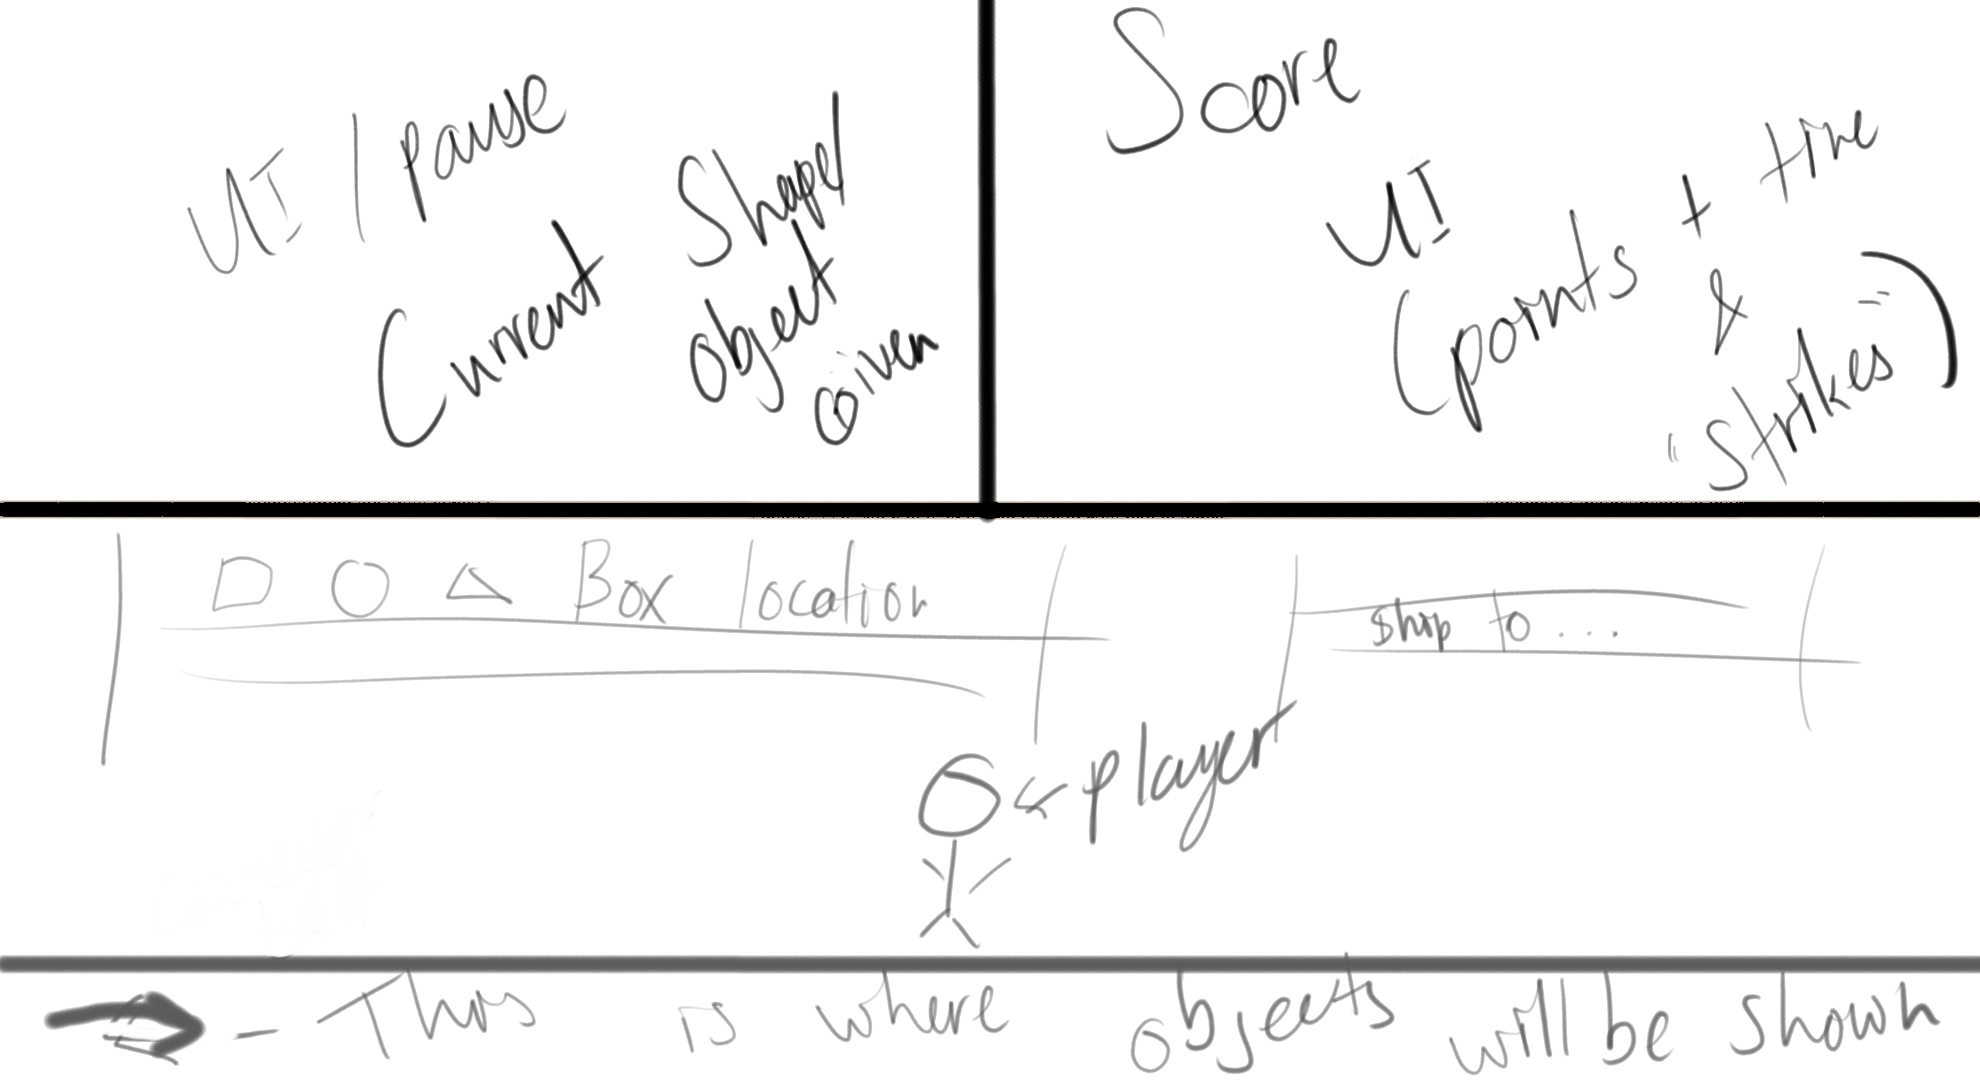 UI / pause
Current Shape/
object
Given
Score
UI
(points + time
&
"strikes")
Box location
Ship to ...
player
- This is where objects will be shown